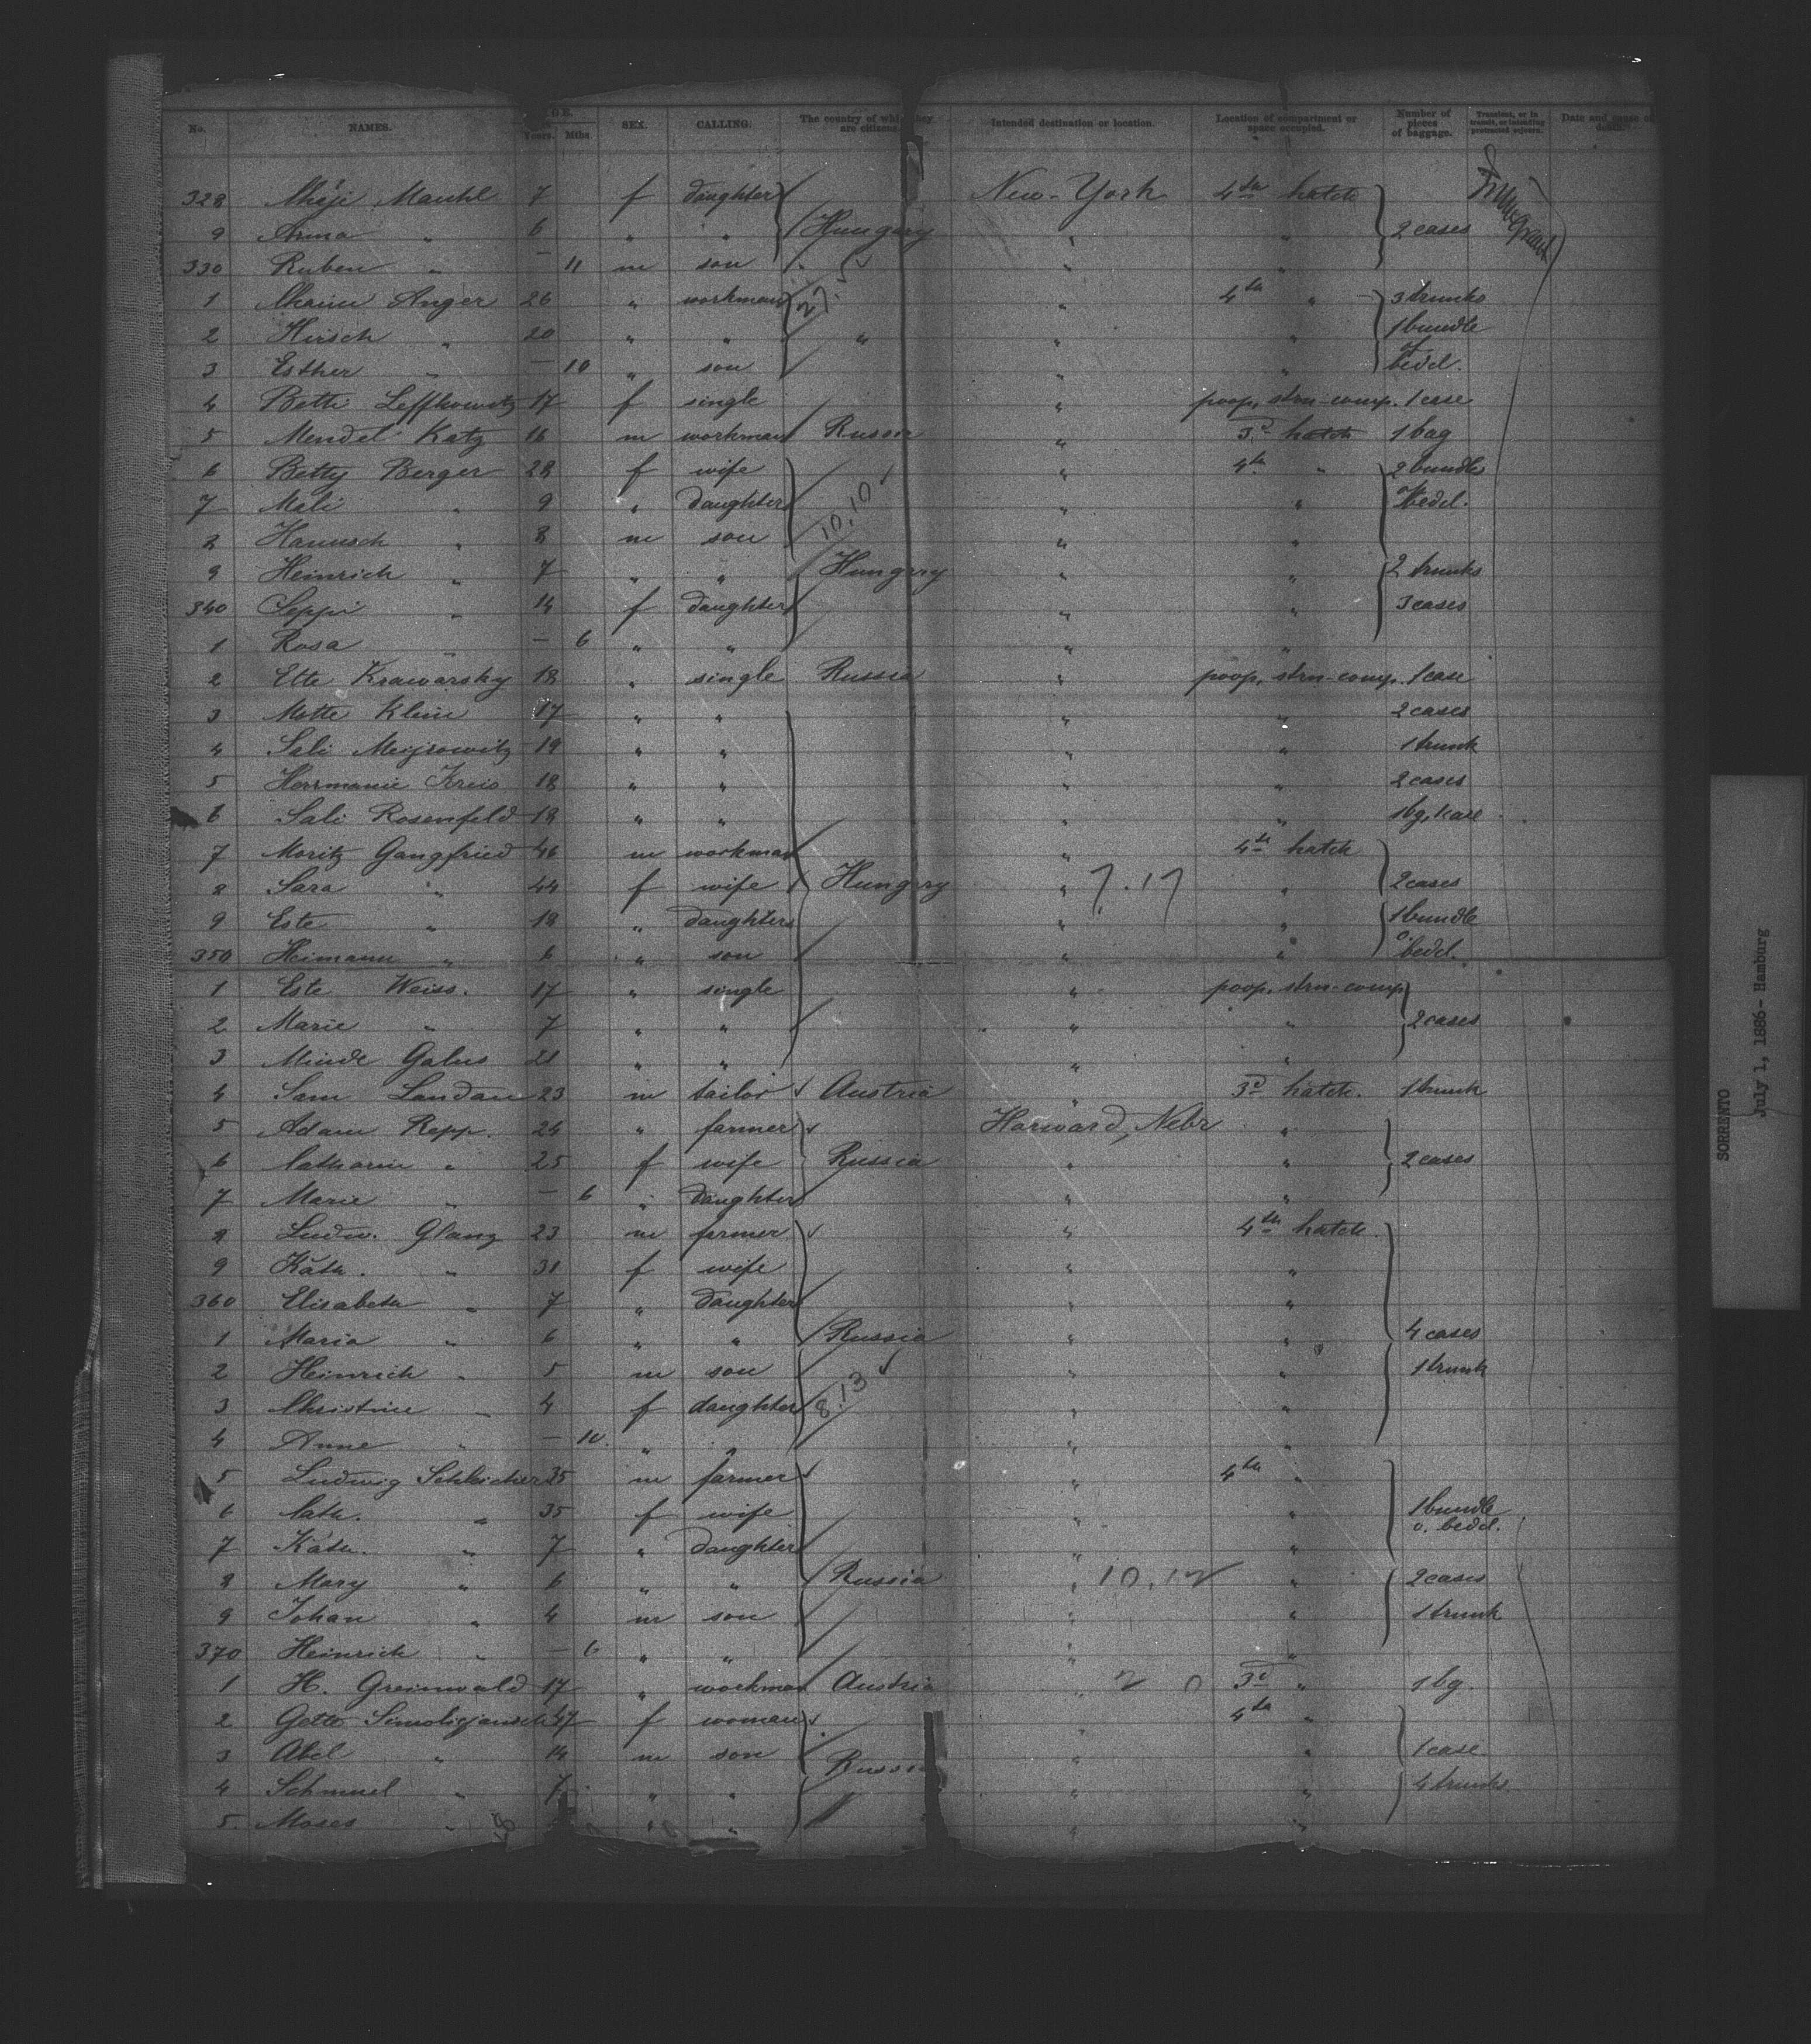 No. NAMES. AGE. Years. Mths SEX. CALLING. The country of which they are citizens. Intended destination or location. Location of compartment or space occupied. Number of pieces of baggage. Transient, or in transit, or intending protracted sojourn. Date and cause of death.
328 Mauhl 7 f daughter New-York 4th hatch Immigrant
9 Anna " 6 " " Hungary " " 2 cases
330 Ruben " — 11 m son " " "
1 Chaim Anger 26 " workman 27. " 4th " 3 trunks
2 Hirsch " 20 " " " " " 1 bundle
3 Esther " — 10 " son " " of bedd.
4 Betti Leffkowitz 17 f single " poop, strn-comp. 1 case
5 Mendel Katz 16 m workman Russia " 3d hatch 1 bag
6 Betty Berger 28 f wife " 4th " 2 bundles
7 Mali " 9 " daughter 10.10 " " o/bedd.
8 Hanusch " 8 m son " "
9 Heinrich " 7 " " Hungary " " 2 trunks
340 Seppi " 14 f daughter " " 3 cases
1 Rosa " — 6 " " " "
2 Ette Krawarsky 18 " single Russia " poop, strn-comp. 1 case
3 Mette Klein 17 " " " " 2 cases
4 Sali Meyrowitz 19 " " " " 1 trunk
5 Herrmanie Kreis 18 " " " " 2 cases
6 Sali Rosenfeld 18 " " " " 1 bg, 1 case
7 Moritz Gangfried 46 m workman " 4th hatch
8 Sara " 44 f wife Hungary " 7.17 " 2 cases
9 Este " 18 " daughter " " 1 bundle
350 Heimann " 6 " son " " o. bedd.
1 Este Weiss. 17 " single " poop. strn-comp
2 Marie " 7 " " " " 2 cases
3 Minde Galus 21 " " " "
4 Sam Landau 23 m tailor Austria " 3d hatch. 1 trunk
5 Adam Repp. 24 " farmer Harward, Nebr "
6 Catharin " 25 f wife Russia " " 2 cases
7 Marie " — 6 " daughter " "
8 Ludw. Glanz 23 m farmer " 4th hatch.
9 Kath. " 31 f wife " "
360 Elisabeth " 7 " daughter " "
1 Maria " 6 " " Russia " " 4 cases
2 Heinrich " 5 m son " " 1 trunk
3 Christine " 4 f daughter 8.13 " "
4 Anne " — 10. " " " "
5 Ludwig Schleicher 35 m farmer " 4th "
6 Cath. " 35 f wife " " 1 bundle o. bedd.
7 Kath. " 7 " daughter " "
8 Mary " 6 " " Russia " 10.12 " 2 cases
9 Johan " 4 m son " " 1 trunk
370 Heinrich " — 6 " " " "
1 H. Greinwald 17 " workman Austria " 2 0 3d " 1 bg.
2 Gette 47 f woman 4th "
3 Abel " 14 m son Russia " " 1 case
4 Schmuel " 7 " " " " 4 trunks
5. Moses " " " " "
SORRENTO
July 1, 1886 - Hamburg